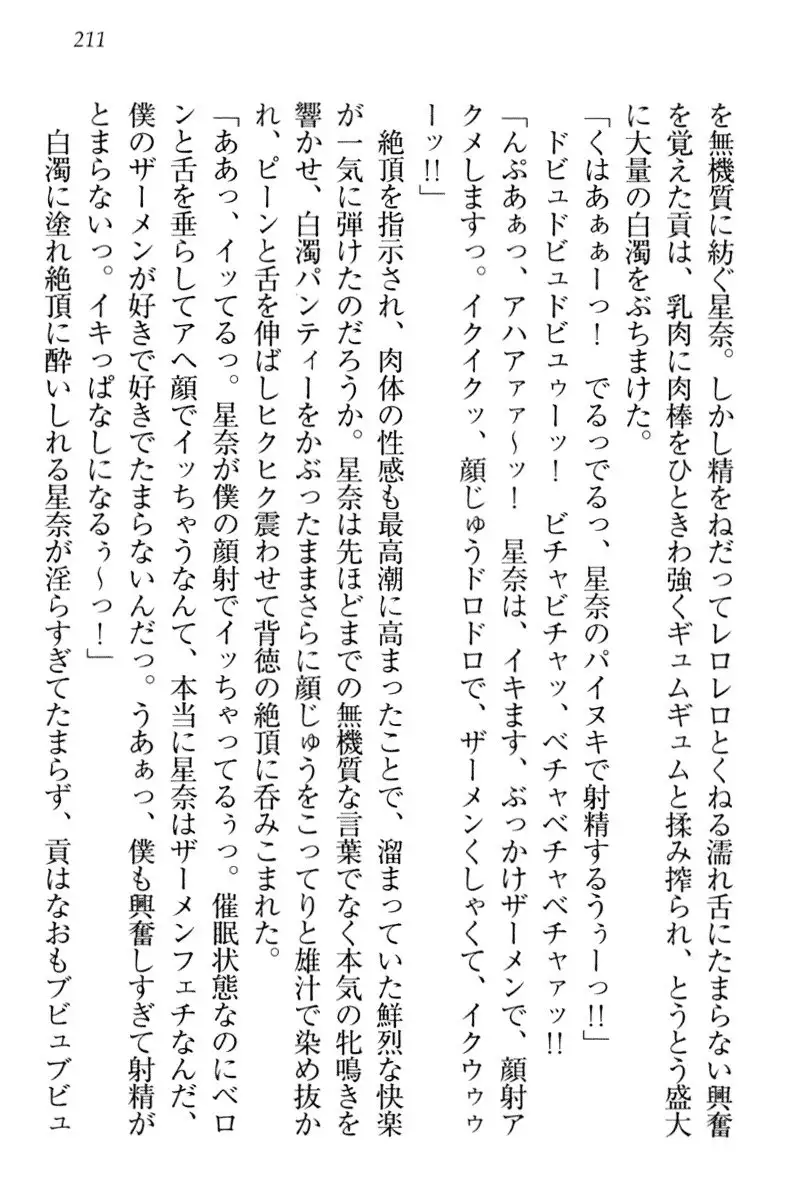 211
を無機質に紡ぐ星奈。しかし精をねだってレロレロとくねる濡れ舌にたまらない興奮
を覚えた貢は、乳肉に肉棒をひときわ強くギュムギュムと揉み搾られ、とうとう盛大
に大量の白濁をぶちまけた。
「くはあぁぁーっ！　でるっでるっ、星奈のパイヌキで射精するうぅーっ!!」
ドビュドビュドビュゥーッ！　ビチャビチャッ、ベチャベチャベチャァッ!!
「んぷあぁっ、アハアァァ～ッ！　星奈は、イキます、ぶっかけザーメンで、顔射ア
クメしますっ。イクイクッ、顔じゅうドロドロで、ザーメンくしゃくて、イクウゥゥ
ーッ!!」
絶頂を指示され、肉体の性感も最高潮に高まったことで、溜まっていた鮮烈な快楽
が一気に弾けたのだろうか。星奈は先ほどまでの無機質な言葉でなく本気の牝鳴きを
響かせ、白濁パンティーをかぶったままさらに顔じゅうをこってりと雄汁で染め抜か
れ、ピーンと舌を伸ばしヒクヒク震わせて背徳の絶頂に呑みこまれた。
「ああっ、イッてるっ。星奈が僕の顔射でイッちゃってるぅっ。催眠状態なのにベロ
ンと舌を垂らしてアヘ顔でイッちゃうなんて、本当に星奈はザーメンフェチなんだ、
僕のザーメンが好きで好きでたまらないんだっ。うあぁっ、僕も興奮しすぎて射精が
とまらないっ。イキっぱなしになるぅ～っ！」
白濁に塗れ絶頂に酔いしれる星奈が淫らすぎてたまらず、貢はなおもブビュブビュ